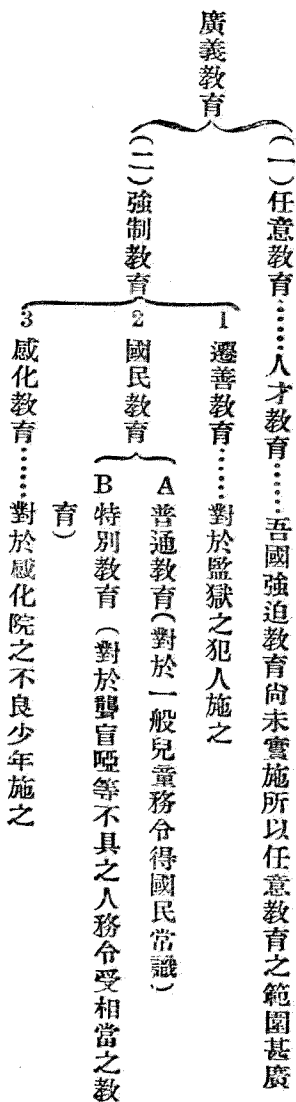 廣義教育
(一)任意教育……人才教育……吾國強迫教育尚未實施所以任意教育之範圍甚廣
(二)強制教育
1 遷善教育……對於監獄之犯人施之
2 國民教育
A 普通教育(對於一般兒童務令得國民常識)
B 特別教育(對於聾盲啞等不具之人務令受相當之教
育)
3 感化教育……對於感化院之不良少年施之